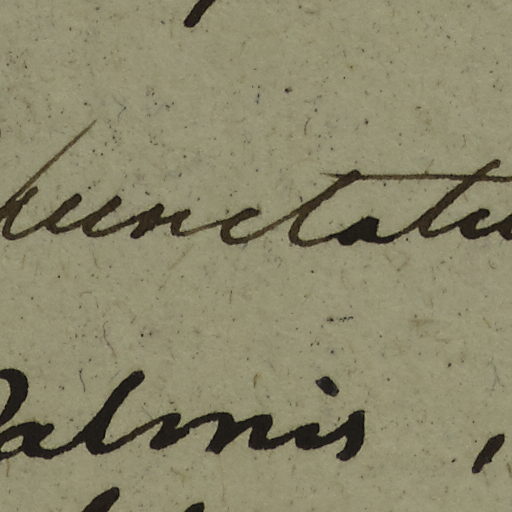 punctatu
Palmis ,